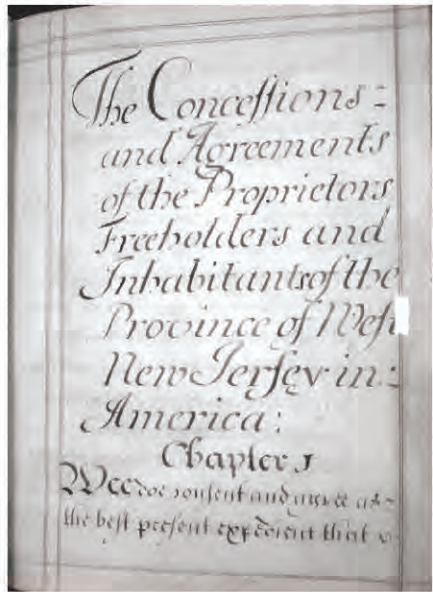 The Conceſſions :
and Agreements
of the Proprietors
Freeholders and
Inhabitants of the
Province of Weſt
New Jerſey in :
America :
Chapter I
Wee doe conſent and agree as
the beſt preſent expedient that